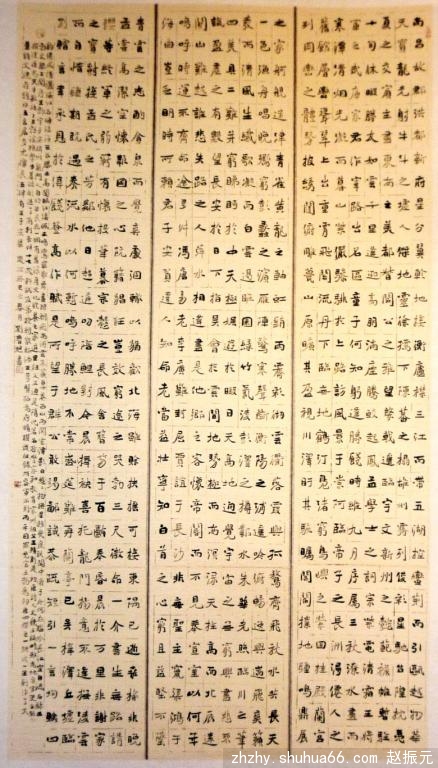 南昌故郡洪都新府星分翼軫地接衡廬襟三江而帶五湖控蠻荊而引甌越物華
天寶龍光射牛斗之墟人傑地靈徐孺下陳蕃之榻雄州霧列俊彩星馳台隍枕夷
夏之交賓主盡東南之美都督閻公之雅望棨戟遙臨宇文新州之懿範襜帷暫駐
十旬休暇勝友如雲千里逢迎高朋滿座騰蛟起鳳孟學士之詞宗紫電清霜王將
軍之武庫家君作宰路出名區童子何知躬逢勝餞時維九月序屬三秋潦水盡而
寒潭清煙光凝而暮山紫儼驂騑於上路訪風景於崇阿臨帝子之長洲得仙人之
舊館層臺聳翠上出重霄飛閣流丹下臨無地鶴汀鳧渚窮島嶼之縈迴桂殿蘭宮
列岡巒之體勢披繡闥俯雕甍山原曠其盈視川澤盱其駭矚閭閻撲地鍾鳴鼎食
之家舸艦迷津青雀黃龍之軸虹銷雨霽彩徹雲衢落霞與孤鶩齊飛秋水共長天
一色漁舟唱晚響窮彭蠡之濱雁陣驚寒聲斷衡陽之浦遙吟俯暢逸興遄飛爽籟
發而清風生纖歌凝而白雲遏睢園綠竹氣凌彭澤之樽鄴水朱華光照臨川之筆
四美具二難并窮睇眄於中天極娛遊於暇日天高地迥覺宇宙之無窮興盡悲來
識盈虛之有數望長安於日下指吳會於雲間地勢極而南溟深天柱高而北辰遠
關山難越誰悲失路之人萍水相逢盡是他鄉之客懷帝閽而不見奉宣室以何年
嗚呼時運不齊命途多舛馮唐易老李廣難封屈賈誼於長沙非無聖主竄梁鴻於
海曲豈乏明時所賴君子安貧達人知命老當益壯寧知白首之心窮且益堅不墜
青雲之志酌貪泉而覺爽處涸轍以猶歡北海雖賒扶搖可接東隅已逝桑榆非晚
孟嘗高潔空懷報國之心阮籍猖狂豈效窮途之哭勃三尺微命一介書生無路請
纓等終軍之弱冠有懷投筆慕宗愨之長風舍簪笏於百齡奉晨昏於萬里非謝家
之寶樹接孟氏之芳鄰他日趨庭叨陪鯉對今晨捧袂喜托龍門楊意不逢撫凌雲
而自惜鍾期既遇奏流水以何慚嗚呼勝地不常盛筵難再蘭亭已矣梓澤丘墟臨
別贈言幸承恩於偉餞登高作賦是所望於群公敢竭鄙誠恭疏短引一言均賦四
zhzhy.shuhua66.com 赵振元